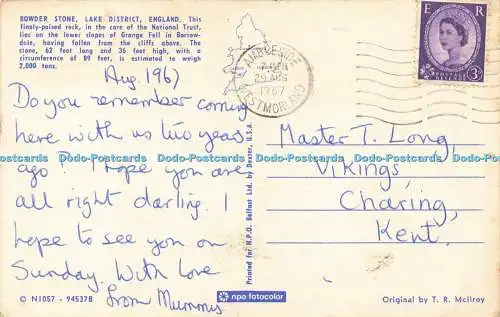 BOWDER STONE, LAKE DISTRICT, ENGLAND. This
finely-poised rock, in the care of the National Trust,
lies on the lower slopes of Grange Fell in Borrow-
dale, having fallen from the cliffs above. The
stone, 62 feet long and 36 feet high, with a
circumference of 89 feet, is estimated to weigh
2,000 tons.
Aug. 1967
Do you remember coming
here with us two years
ago? I hope you are
all right darling. I
hope to see you on
Sunday. With love
from Mummy
© N1057 - 94537B
Printed for N.P.O. Belfast Ltd. by Dexter, U.S.A.
npo fotocolor
AMBLESIDE
29 AUG
1967
WESTMORLAND
E R
3D
Master T. Long,
Vikings,
Charing,
Kent.
Original by T. R. McIlroy
Dodo-Postcards Dodo-Postcards Dodo-Postcards Dodo-Postcards Dodo-Postcards